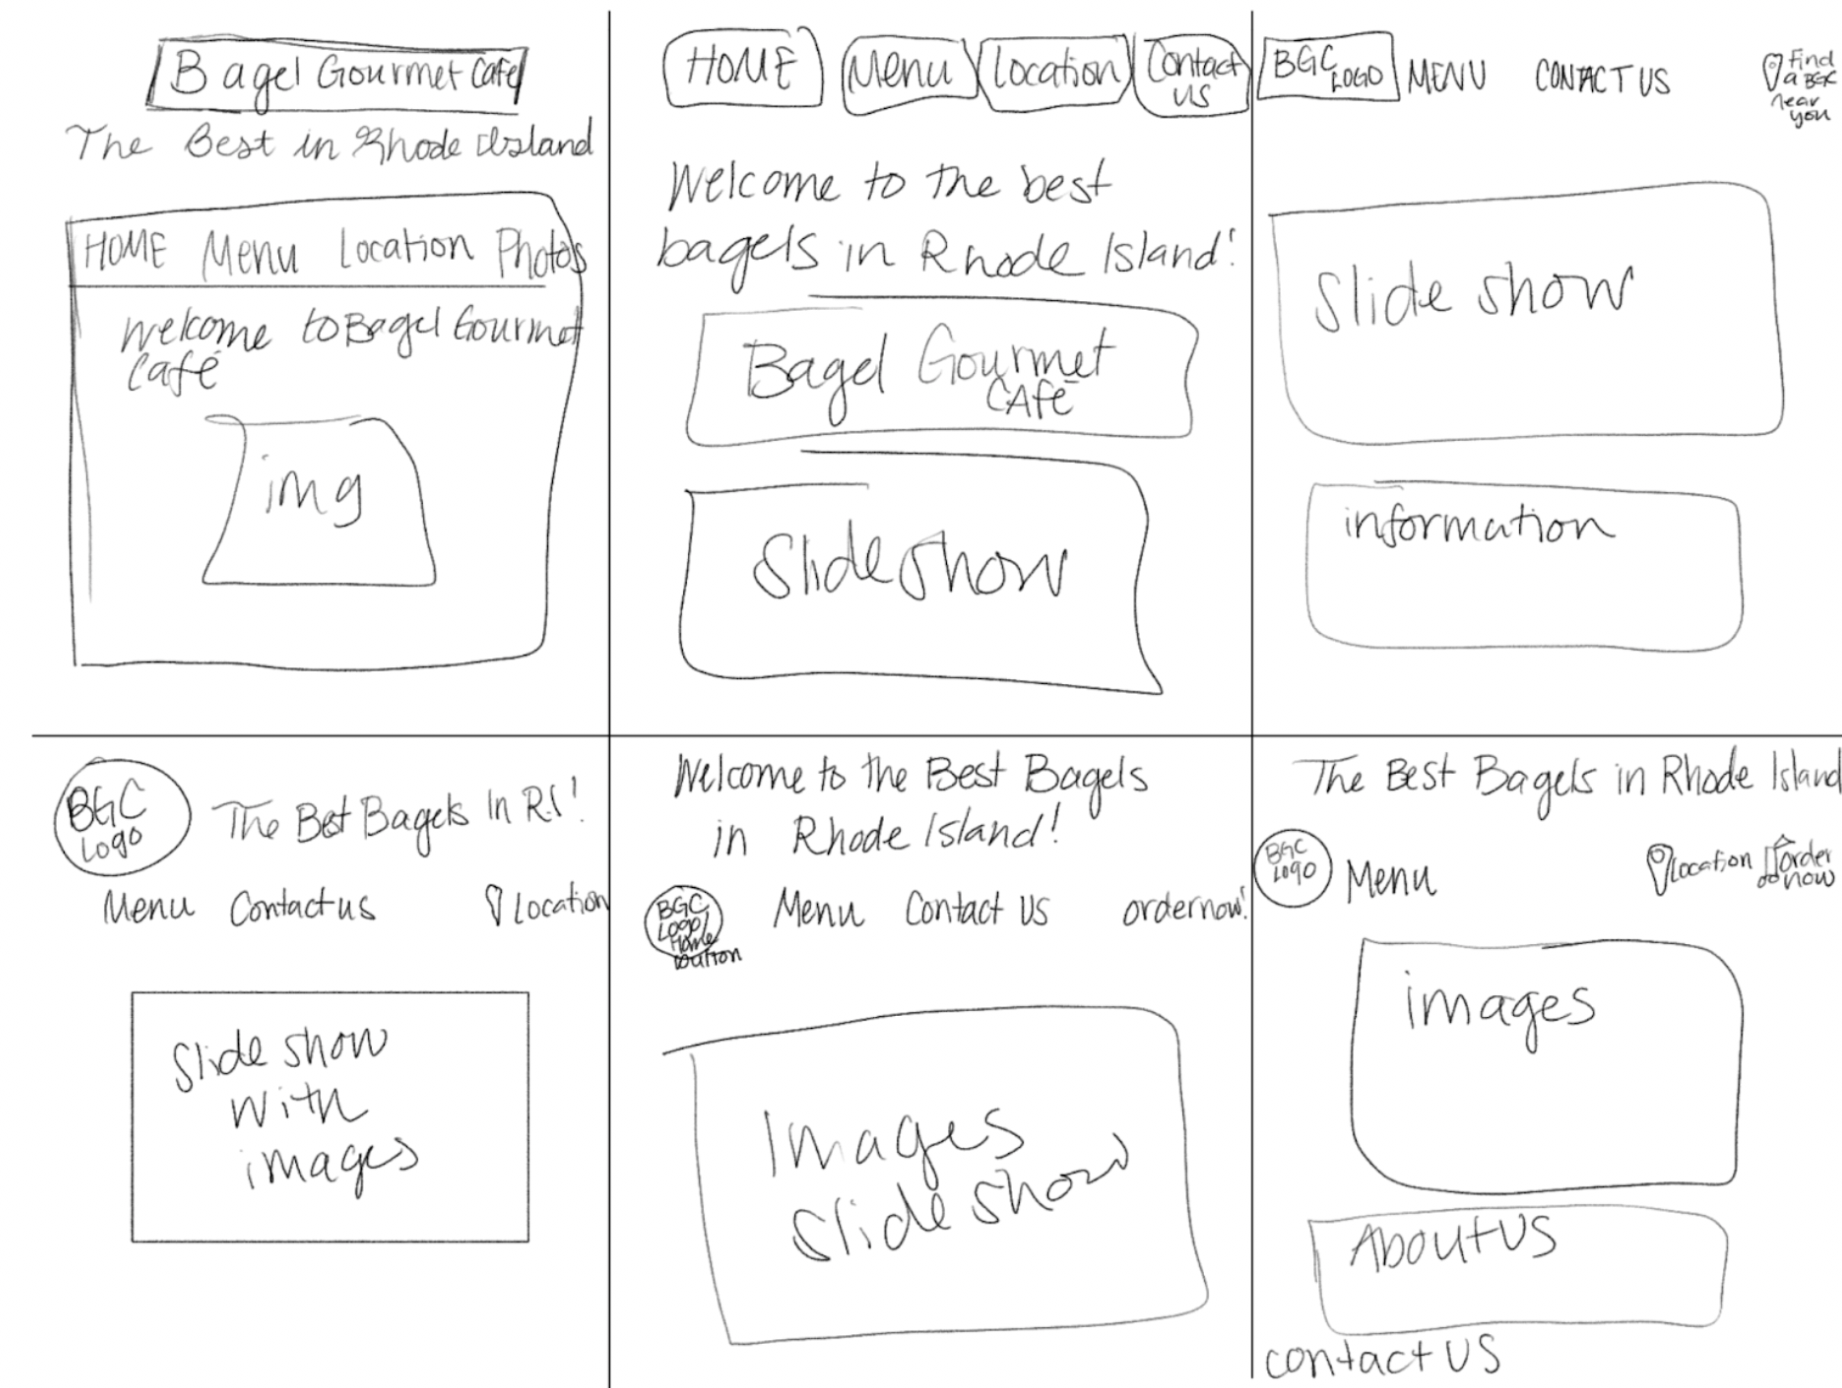 Bagel Gourmet Cafe
The Best in Rhode Island
HOME Menu Location Photos
Welcome to Bagel Gourmet
Café
img
HOME Menu Location Contact
US
Welcome to the best
bagels in Rhode Island!
Bagel Gourmet
CAFE
Slideshow
BGC
LOGO
MENU CONTACT US
Find
a BGC
near
you
Slide show
information
BGC
Logo
The Best Bagels In R.I!
Menu Contact us Location
Slide show
with
images
Welcome to the Best Bagels
in Rhode Island!
BGC
Logo/
Home
button
Menu Contact US order now!
Images
Slide show
The Best Bagels in Rhode Island
BGC
Logo
Menu
Location
order
now
images
About US
contact US